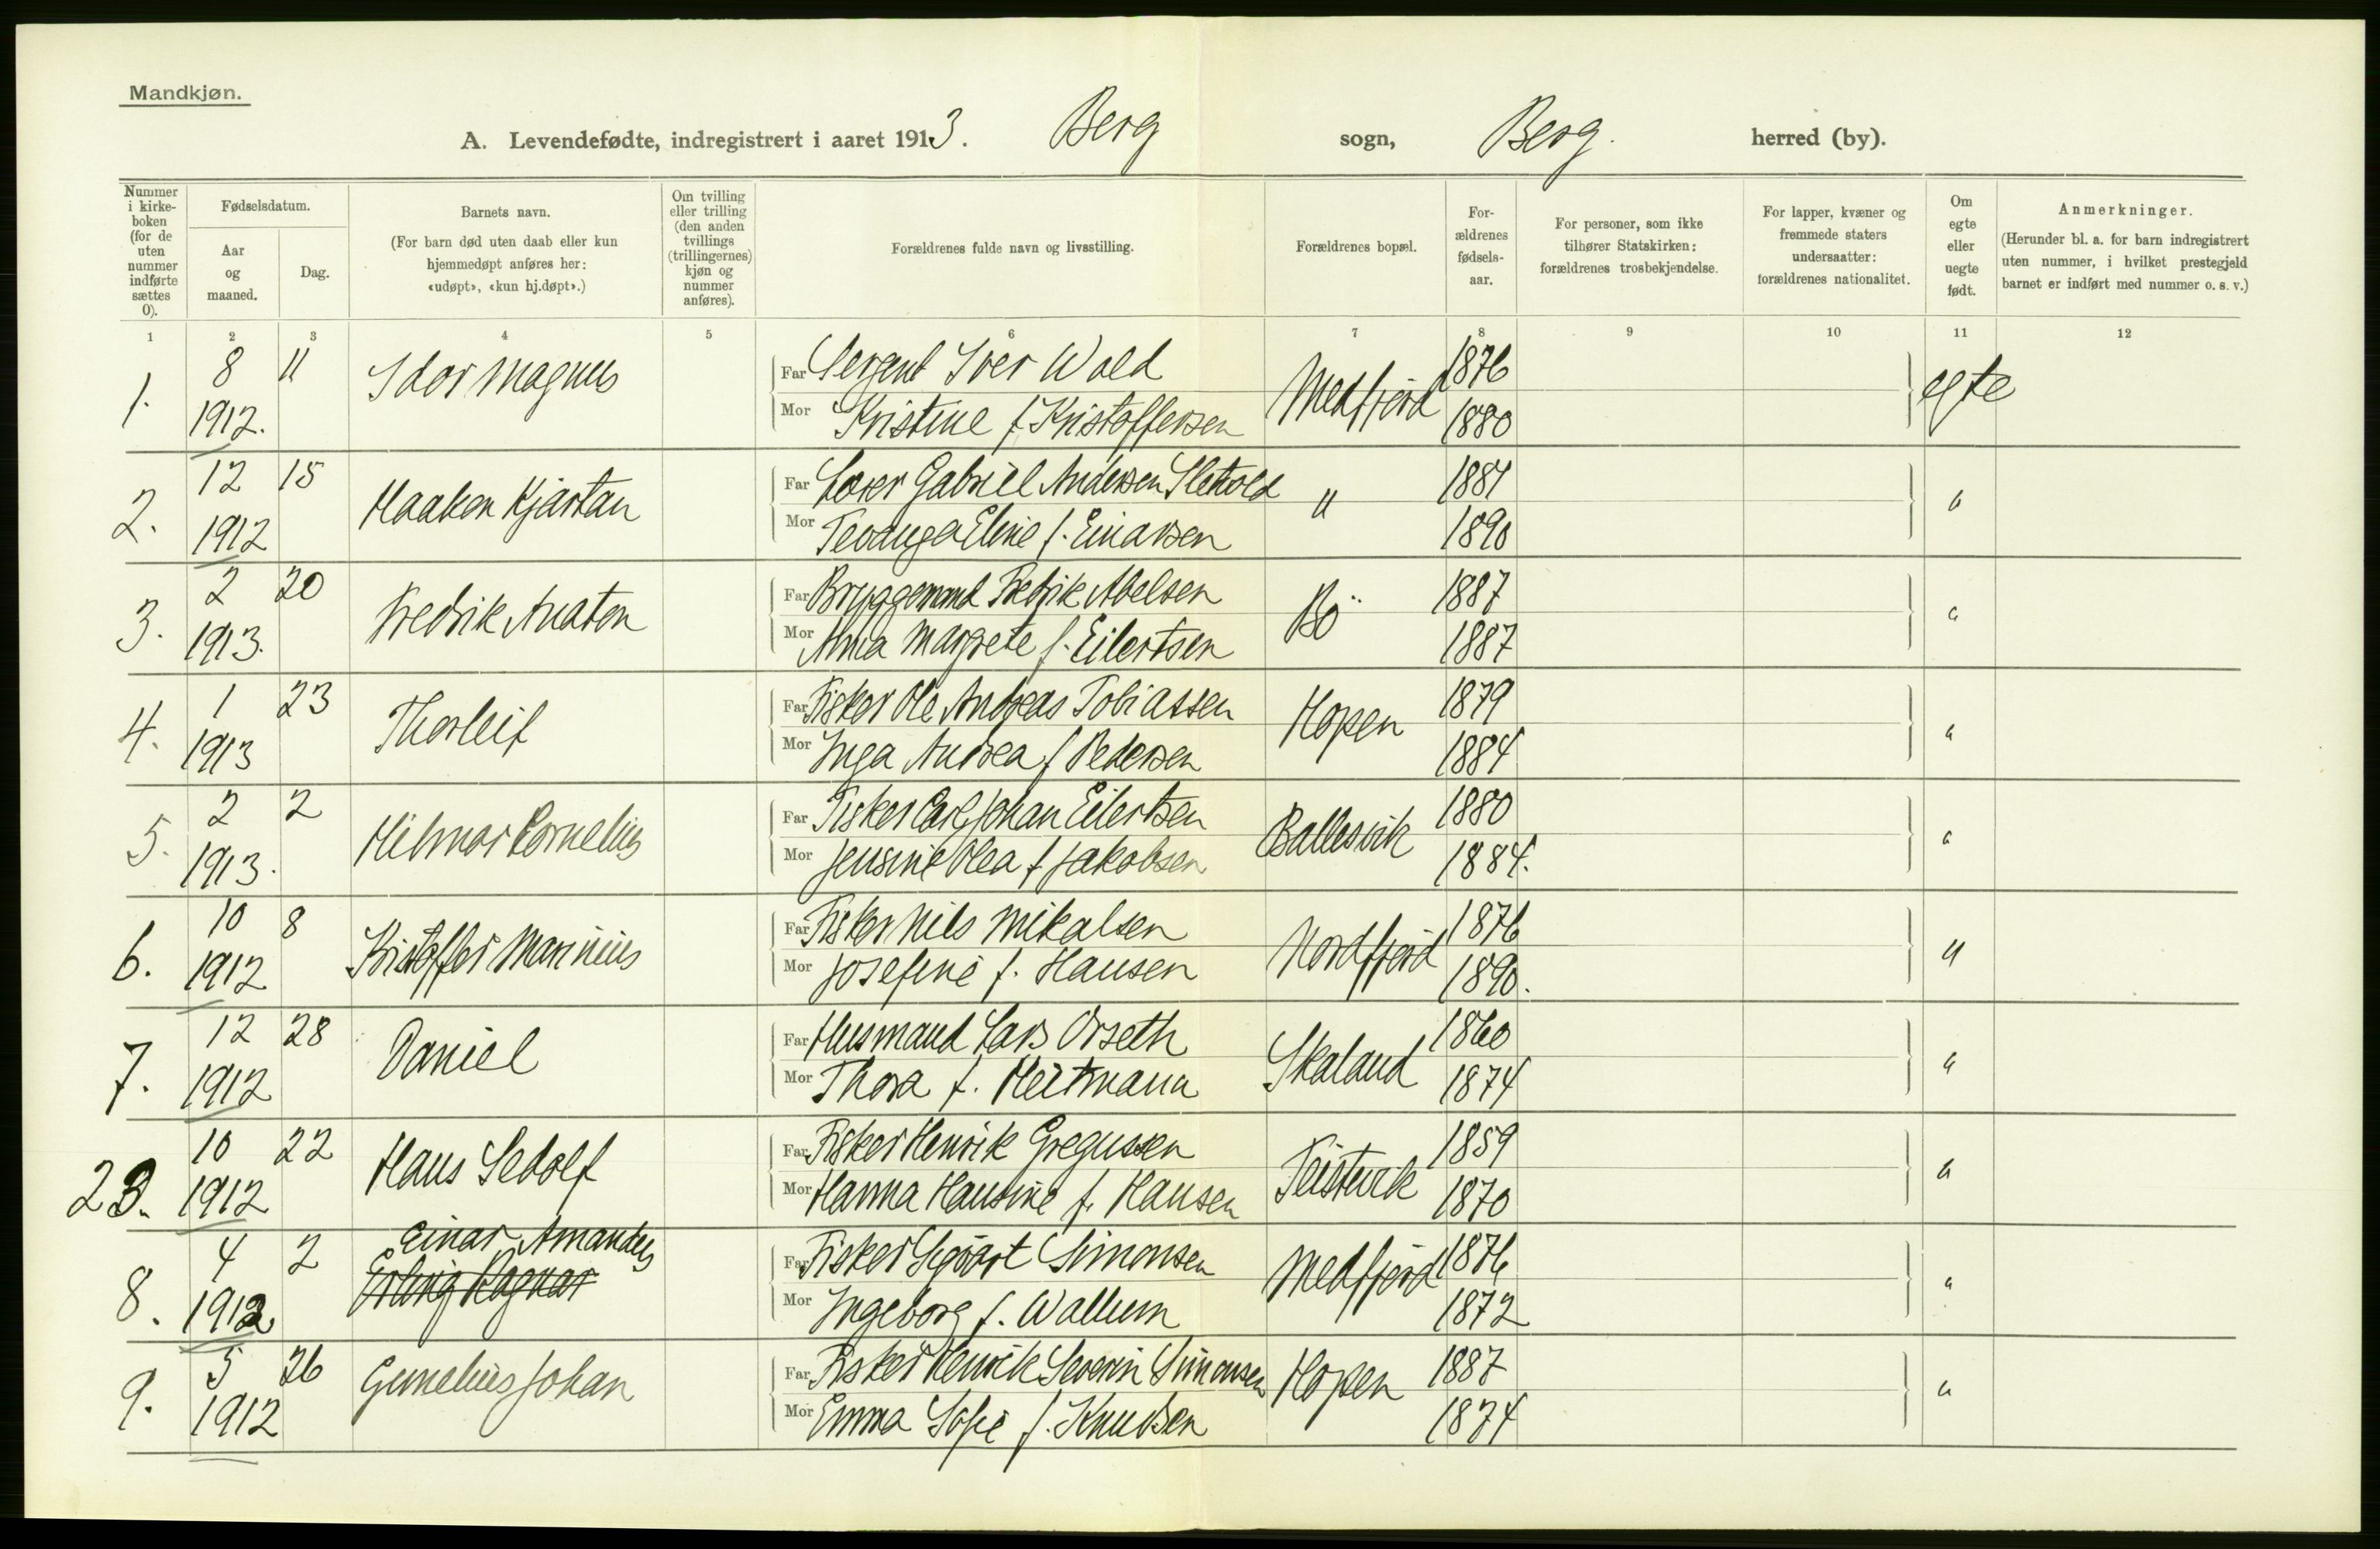 Mandkjøn.
A. Levendefødte, indregistrert i aaret 1913. Berg sogn, Berg. herred (by).
Nummer i kirkeboken (for de uten nummer indførte sættes 0).
Fødselsdatum.
Aar og maaned.
Dag.
Barnets navn.
(For barn død uten daab eller kun hjemmedøpt anføres her: «udøpt», «kun hj.døpt».)
Om tvilling eller trilling (den anden tvillings (trillingernes) kjøn og nummer anføres).
Forældrenes fulde navn og livsstilling.
Forældrenes bopæl.
Forældrenes fødselsaar.
For personer, som ikke tilhører Statskirken: forældrenes trosbekjendelse.
For lapper, kvæner og fremmede staters undersaatter: forældrenes nationalitet.
Om egte eller uegte født.
Anmerkninger.
(Herunder bl. a. for barn indregistrert uten nummer, i hvilket prestegjeld barnet er indført med nummer o. s. v.)
1 2 3 4 5 6 7 8 9 10 11 12
1. 8 1912. 11 Idor Magnus Far Sergent Iver Wold Medfjord 1876 egte
Mor Kristine f Kristoffersen 1880
2. 12 1912 15 Haakon Kjartan Far Lærer Gabriel Andersen Sletvold " 1881 "
Mor Eline f. Einarsen 1890
3. 2 1913. 20 Fredrik Anaton Far Bryggemand Fredrik Abelsen Bö 1887 "
Mor Anna Margrete f. Eilertsen 1887
4. 1 1913 23 Thorleif Far Fisker Ole Andreas Tobiassen Hopen 1879 "
Mor Inga Andrea f Pedersen 1884
5. 2 1913. 2 Hilmar Cornelius Far Fisker Carl Johan Eilertsen Ballesvik 1880 "
Mor Jensine Olea f Jakobsen 1884.
6. 10 1912 8 Kristoffer Marinius Far Fisker Nils Mikalsen Nordfjord 1876 "
Mor Josefine f. Hansen 1890.
7. 12 1912 28 Daniel Far Husmand Lars Orseth Skaland 1860 "
Mor Thora f. Heitmann 1874
23. 10 1912 22 Hans Sedolf Far Fisker Henrik Gregussen Teistevik 1859 "
Mor Hanna Hansine f. Hansen 1870
8. 4 1912 2 Einar Amandus Far Fisker Sigvart Simonsen Medfjord 1876 "
Erling Ragnar
Mor Ingeborg f. Wallum 1872
9. 5 1912 26 Gunelius Johan Far Fisker Henrik Severin Simonsen Hopen 1887 "
Mor Emma Sofie f. Knudsen 1874